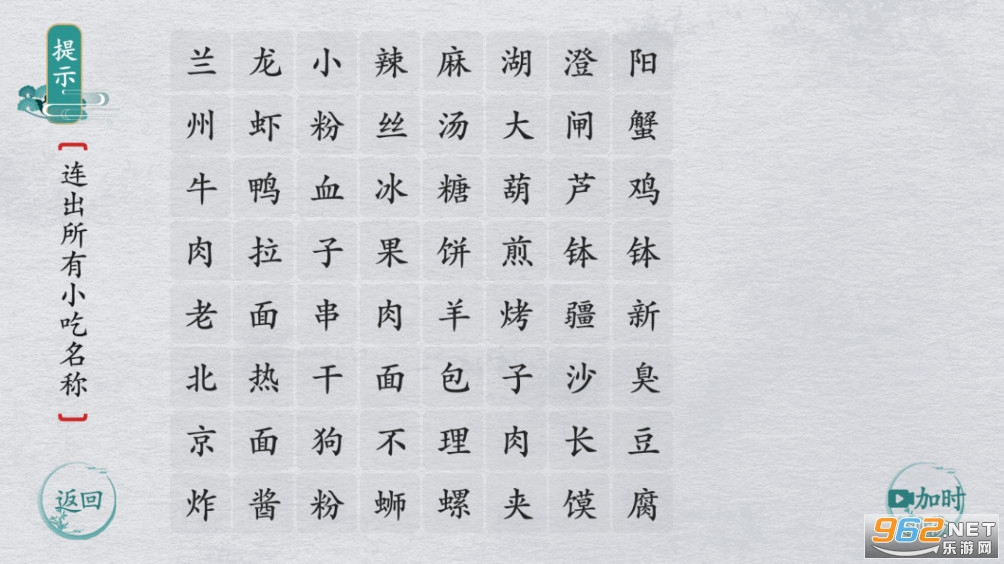 提示
【连出所有小吃名称】
兰龙小辣麻湖澄阳
州虾粉丝汤大闸蟹
牛鸭血冰糖葫芦鸡
肉拉子果饼煎钵钵
老面串肉羊烤疆新
北热干面包子沙臭
京面狗不理肉长豆
炸酱粉蛳螺夹馍腐
返回
加时
962.NET
乐游网